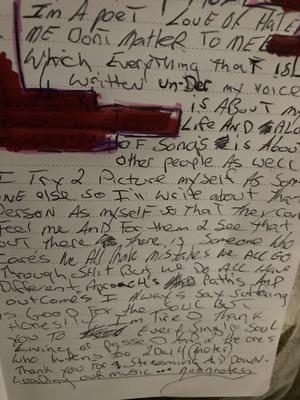 I'm A poet Love OR Hate
ME Don't Matter To ME
Which Everything that IS
Written Un-Der my voice
IS ABout my
Life AND ALL
OF Songs IS ABout
Other people As Well
I Try 2 Picture myself As Som
ONE else So I'll write about that
Person As myself so that they can
Feel me And For them 2 See that
out There There is Someone who
Care's We All Make mistakes We ALL Go
Through Shit But we do ALL Have
Different Aproach's Paths And
outcomes I Always Say Suffering
is Good For the Soul But
Honestly I'm Tired Thank
You To Every Single Soul
Living or Passed And
Who happens too 2Day
Thank you For Streaming And Down-
Loading our music...